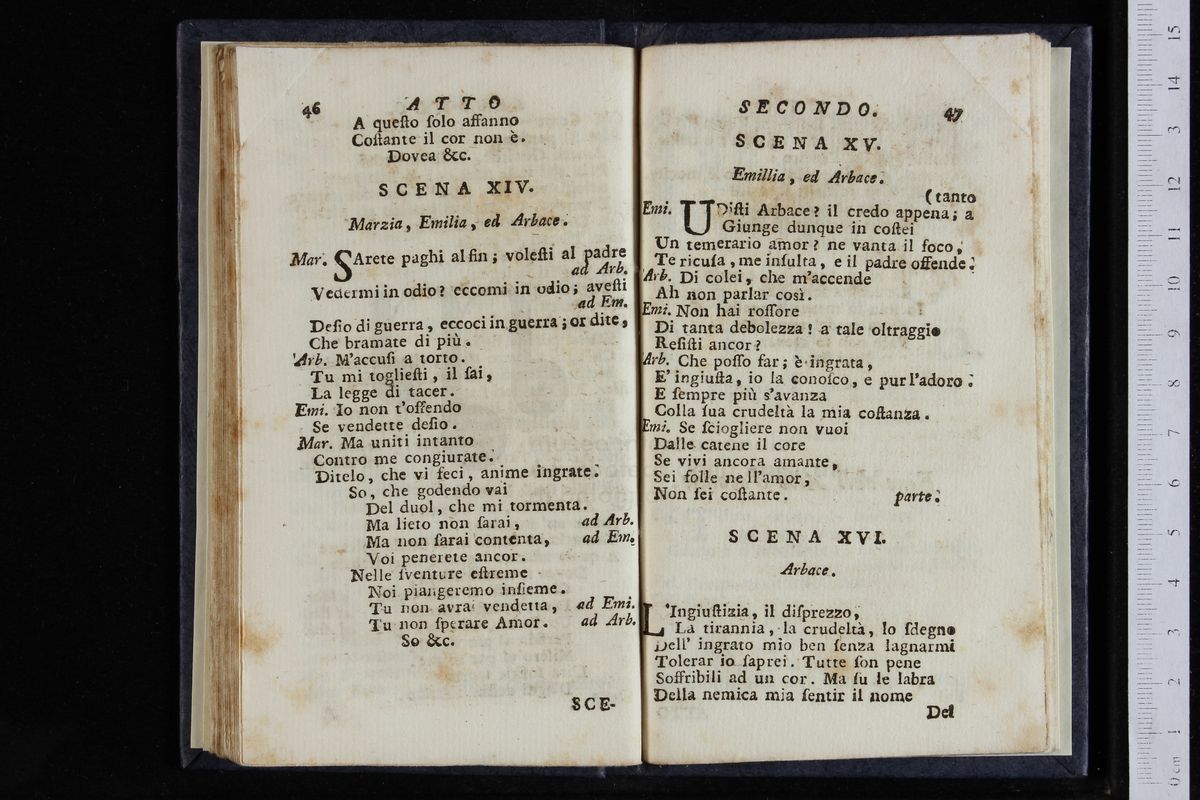 46
ATTO
A queſto ſolo affanno
Coſtante il cor non è.
Dovea &c.
SCENA XIV.
Marzia, Emilia, ed Arbace.
Mar. SArete paghi al fin; voleſti al padre
ad Arb.
Vedermi in odio? eccomi in odio; aveſti
ad Em.
Deſio di guerra, eccoci in guerra; or dite,
Che bramate di più.
Arb. M'accuſi a torto.
Tu mi toglieſti, il ſai,
La legge di tacer.
Emi. Io non t'offendo
Se vendette deſio.
Mar. Ma uniti intanto
Contro me congiurate.
Ditelo, che vi feci, anime ingrate.
So, che godendo vai
Del duol, che mi tormenta.
Ma lieto non ſarai, ad Arb.
Ma non ſarai contenta, ad Em.
Voi penerete ancor.
Nelle ſventure eſtreme
Noi piangeremo inſieme.
Tu non avrai vendetta, ad Emi.
Tu non ſperare Amor. ad Arb.
So &c.
SCE-
SECONDO.
47
SCENA XV.
Emillia, ed Arbace.
(tanto
Emi. UDiſti Arbace? il credo appena; a
Giunge dunque in coſtei
Un temerario amor? ne vanta il foco,
Te ricuſa, me inſulta, e il padre offende.
Arb. Di colei, che m'accende
Ah non parlar così.
Emi. Non hai roſſore
Di tanta debolezza! a tale oltraggio
Reſiſti ancor?
Arb. Che poſſo far; è ingrata,
E' ingiuſta, io la conoſco, e pur l'adoro.
E ſempre più s'avanza
Colla ſua crudeltà la mia coſtanza.
Emi. Se ſciogliere non vuoi
Dalle catene il core
Se vivi ancora amante,
Sei folle nell'amor,
Non ſei coſtante. parte.
SCENA XVI.
Arbace.
L'Ingiuſtizia, il diſprezzo,
La tirannia, la crudeltà, lo ſdegno
Dell' ingrato mio ben ſenza lagnarmi
Tolerar io ſaprei. Tutte ſon pene
Soffribili ad un cor. Ma ſu le labra
Della nemica mia ſentir il nome
Del
0 cm 1 2 3 4 5 6 7 8 9 10 11 12 13 14 15